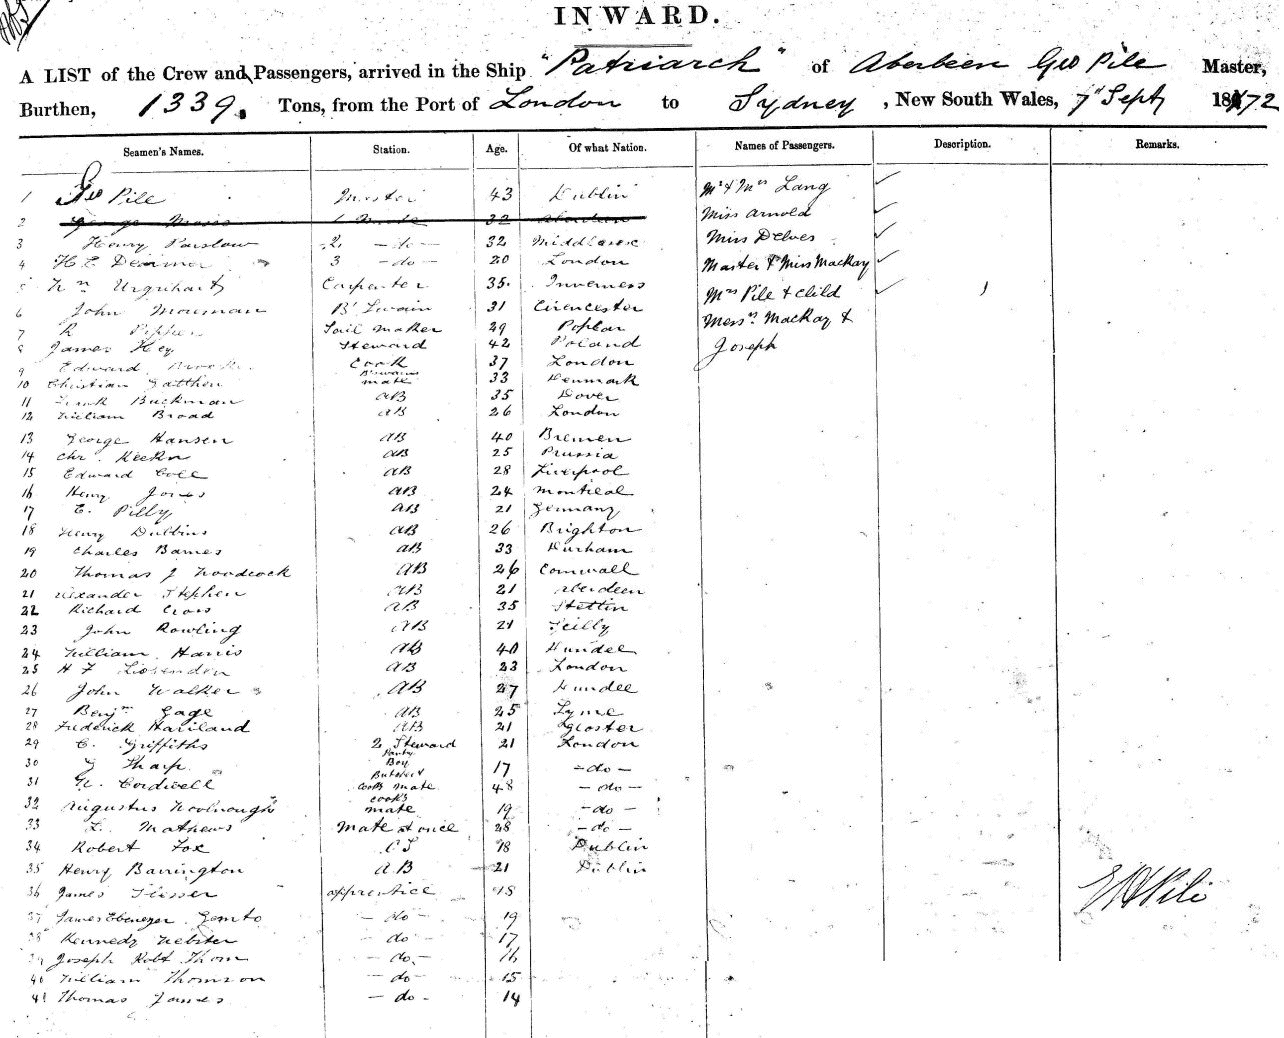 INWARD.
A LIST of the Crew and Passengers, arrived in the Ship "Patriarch" of Aberdeen Geo Pile Master,
Burthen, 1339. Tons, from the Port of London to Sydney, New South Wales, 7" Sept 1872
Seamen's Names. Station. Age. Of what Nation. Names of Passengers. Description. Remarks.
1 Geo Pile Master 43 Dublin Mr & Mrs Lang
2 George 1 Mate 32 Aberdeen Miss Arnold
3 Henry Parslow 2 -do- 32 Middlesex Miss Delves
4 H E 3 -do- 20 London Master & Miss MacKay
5 Wm Urquhart Carpenter 35. Inverness Mrs Pile & Child
6 John Mousman B'Swain 31 Cirencester Messrs MacKay &
7 R Pepper Sail Maker 29 Poplar Joseph
8 James Hey Steward 42 Poland
9 Edward Cook 37 London
10 Christian B'swains mate 33 Denmark
11 Buckman AB 35 Dover
12 William Broad AB 26 London
13 George Hansen AB 40 Bremen
14 Chr. AB 25 Prussia
15 Edward Cole AB 28 Liverpool
16 Henry Jones AB 24 Montreal
17 E. Pilly AB 21 Germany
18 Henry Dubbins AB 26 Brighton
19 Charles Barnes AB 33 Durham
20 Thomas J Woodcock AB 26 Cornwall
21 Alexander Stephen AB 21 Aberdeen
22 Richard Cross AB 35 Stettin
23 John Rowling AB 21 Scilly
24 William Harris AB 40 Dundee
25 H F AB 23 London
26 John Walker AB 27 Dundee
27 Benjn Gage AB 25 Lyme
28 Frederick Haviland AB 21 Gloster
29 C. Griffiths 2 Steward 21 London
30 Tharp Pantry Boy 17 -do-
31 Cordwell Butcher & Cooks mate 48 -do-
32 Augustus Woolnough cook's mate 19 -do-
33 L. Mathews Mate at once 28 -do-
34 Robert Fox 18 Dublin
35 Henry Barrington AB 21 Dublin
36 James apprentice 18
37 James Ebenezer -do- 19
38 Kennedy Webster -do- 17
39 Joseph Robt Thom -do- 16
40 William Thomson -do- 15
41 Thomas James -do- 14